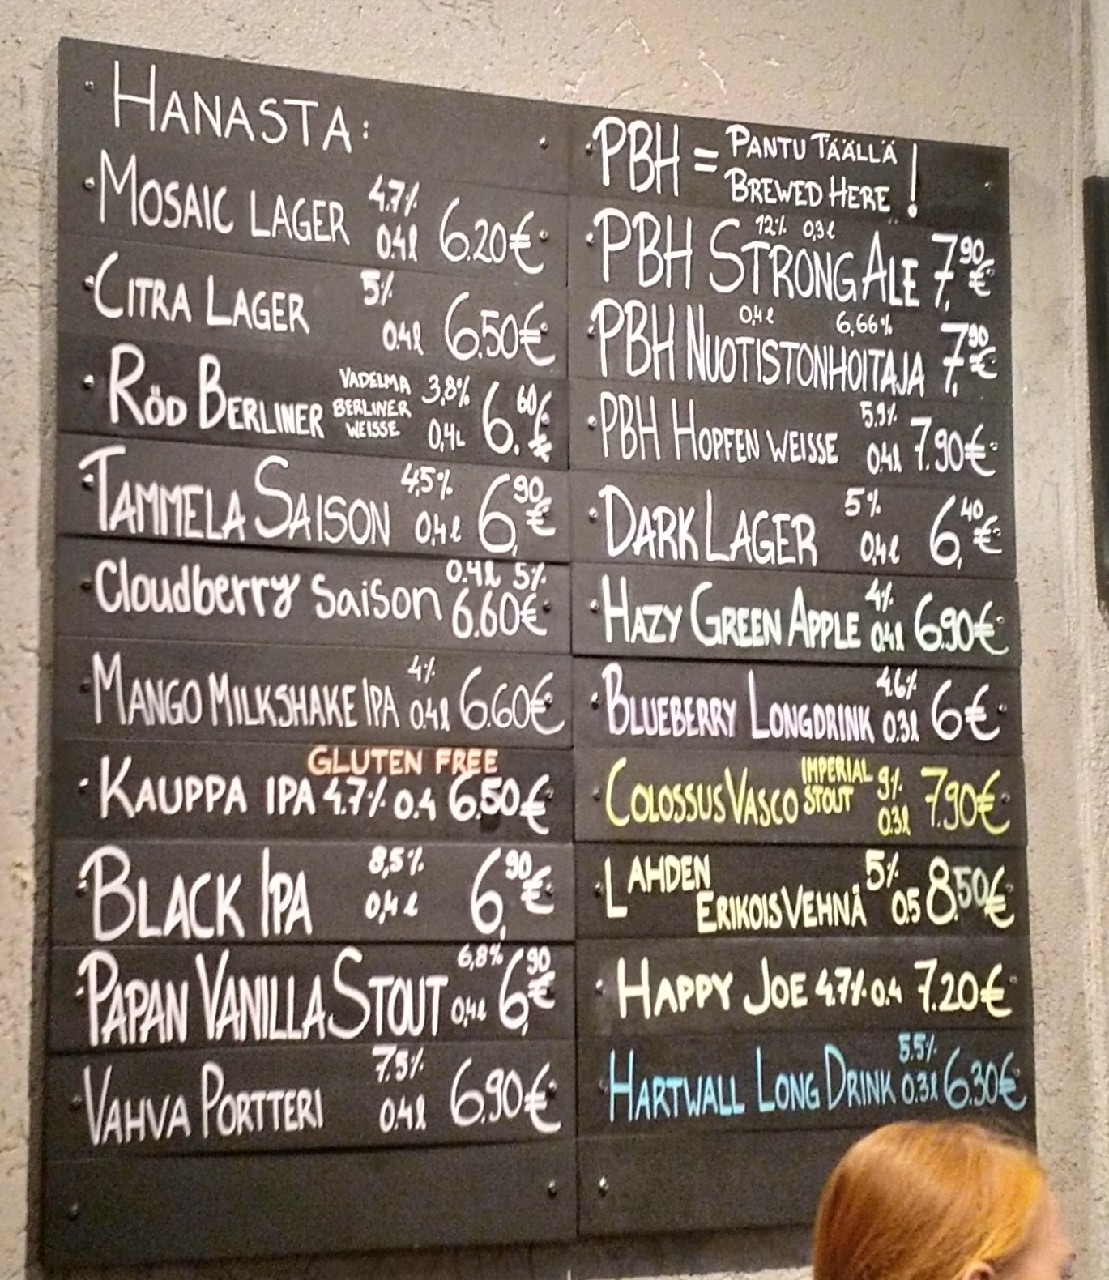 HANASTA:
MOSAIC LAGER 4.7% 0.4l 6.20€
CITRA LAGER 5% 0.4l 6.50€
RÖD BERLINER VADELMA BERLINER WEISSE 3,8% 0,4L 6.60€
TAMMELA SAISON 4,5% 0,4l 6,90€
Cloudberry Saison 0.4l 5% 6.60€
MANGO MILKSHAKE IPA 4% 0.4l 6.60€
GLUTEN FREE
KAUPPA IPA 4.7% 0.4 6.50€
BLACK IPA 8,5% 0,4l 6,90€
PAPAN VANILLA STOUT 6,8% 0,4l 6,90€
VAHVA PORTTERI 7.5% 0.4l 6.90€
PBH = PANTU TÄÄLLÄ!
BREWED HERE
PBH STRONG ALE 12% 0,3l 7,90€
PBH NUOTISTONHOITAJA 0,4l 6,66% 7,90€
PBH HOPFEN WEISSE 5.9% 0.4l 7.90€
DARK LAGER 5% 0,4l 6,40€
HAZY GREEN APPLE 4% 0.4l 6.90€
BLUEBERRY LONGDRINK 4.6% 0.3l 6€
COLOSSUS VASCO IMPERIAL STOUT 9% 0.3l 7.90€
LAHDEN ERIKOISVEHNÄ 5% 0.5 8.50€
HAPPY JOE 4.7% 0.4 7.20€
HARTWALL LONG DRINK 5.5% 0.3l 6.30€